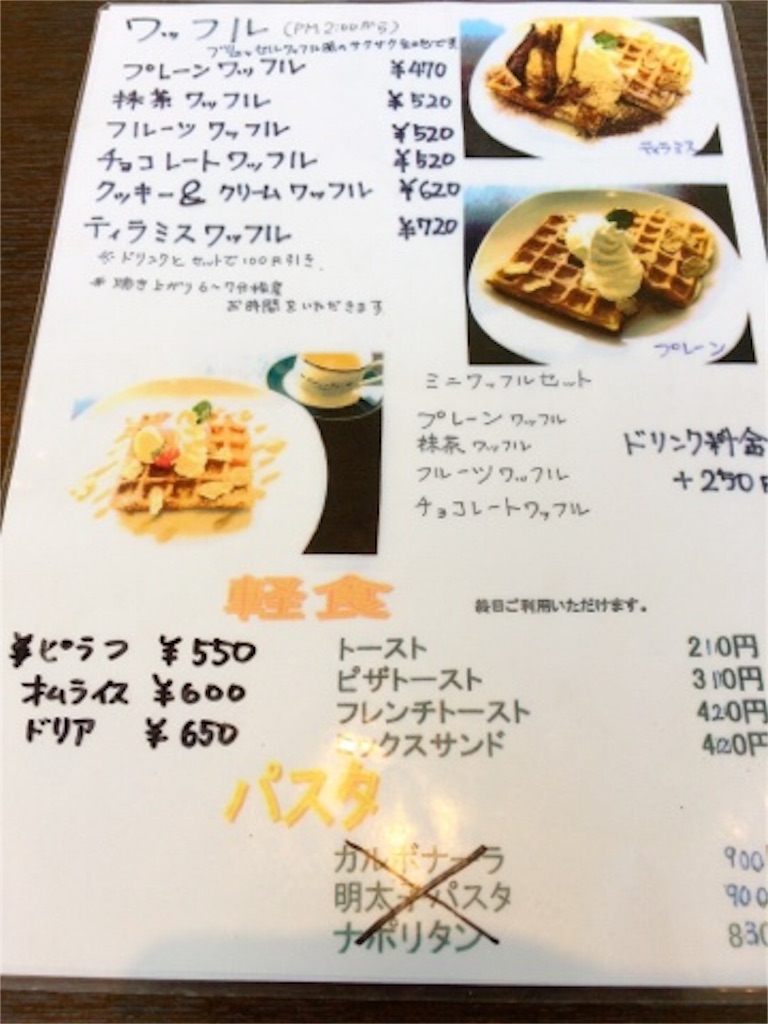 ワッフル (PM 2:00から)
ブリュッセルワッフル風のサクサク
プレーンワッフル ¥470
抹茶ワッフル ¥520
フルーツワッフル ¥520
チョコレートワッフル ¥520
クッキー&クリームワッフル ¥620
ティラミスワッフル ¥720
※ドリンクとセットで100円引き
※焼き上がり6~7分程度
お時間をいただきます
ティラミス
プレーン
ミニワッフルセット
プレーンワッフル
抹茶ワッフル
フルーツワッフル
チョコレートワッフル
ドリンク料金
+250
軽食
終日ご利用いただけます。
ピラフ ¥550
オムライス ¥600
ドリア ¥650
トースト 210円
ピザトースト 310円
フレンチトースト 420円
ミックスサンド 420円
パスタ
カルボナーラ 900
明太子パスタ 900
ナポリタン 830